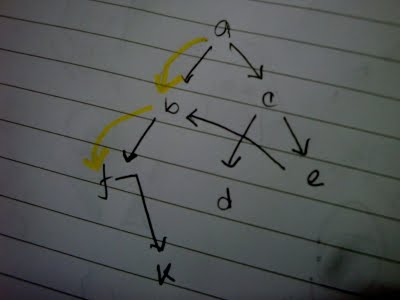 a
b c
f d e
k